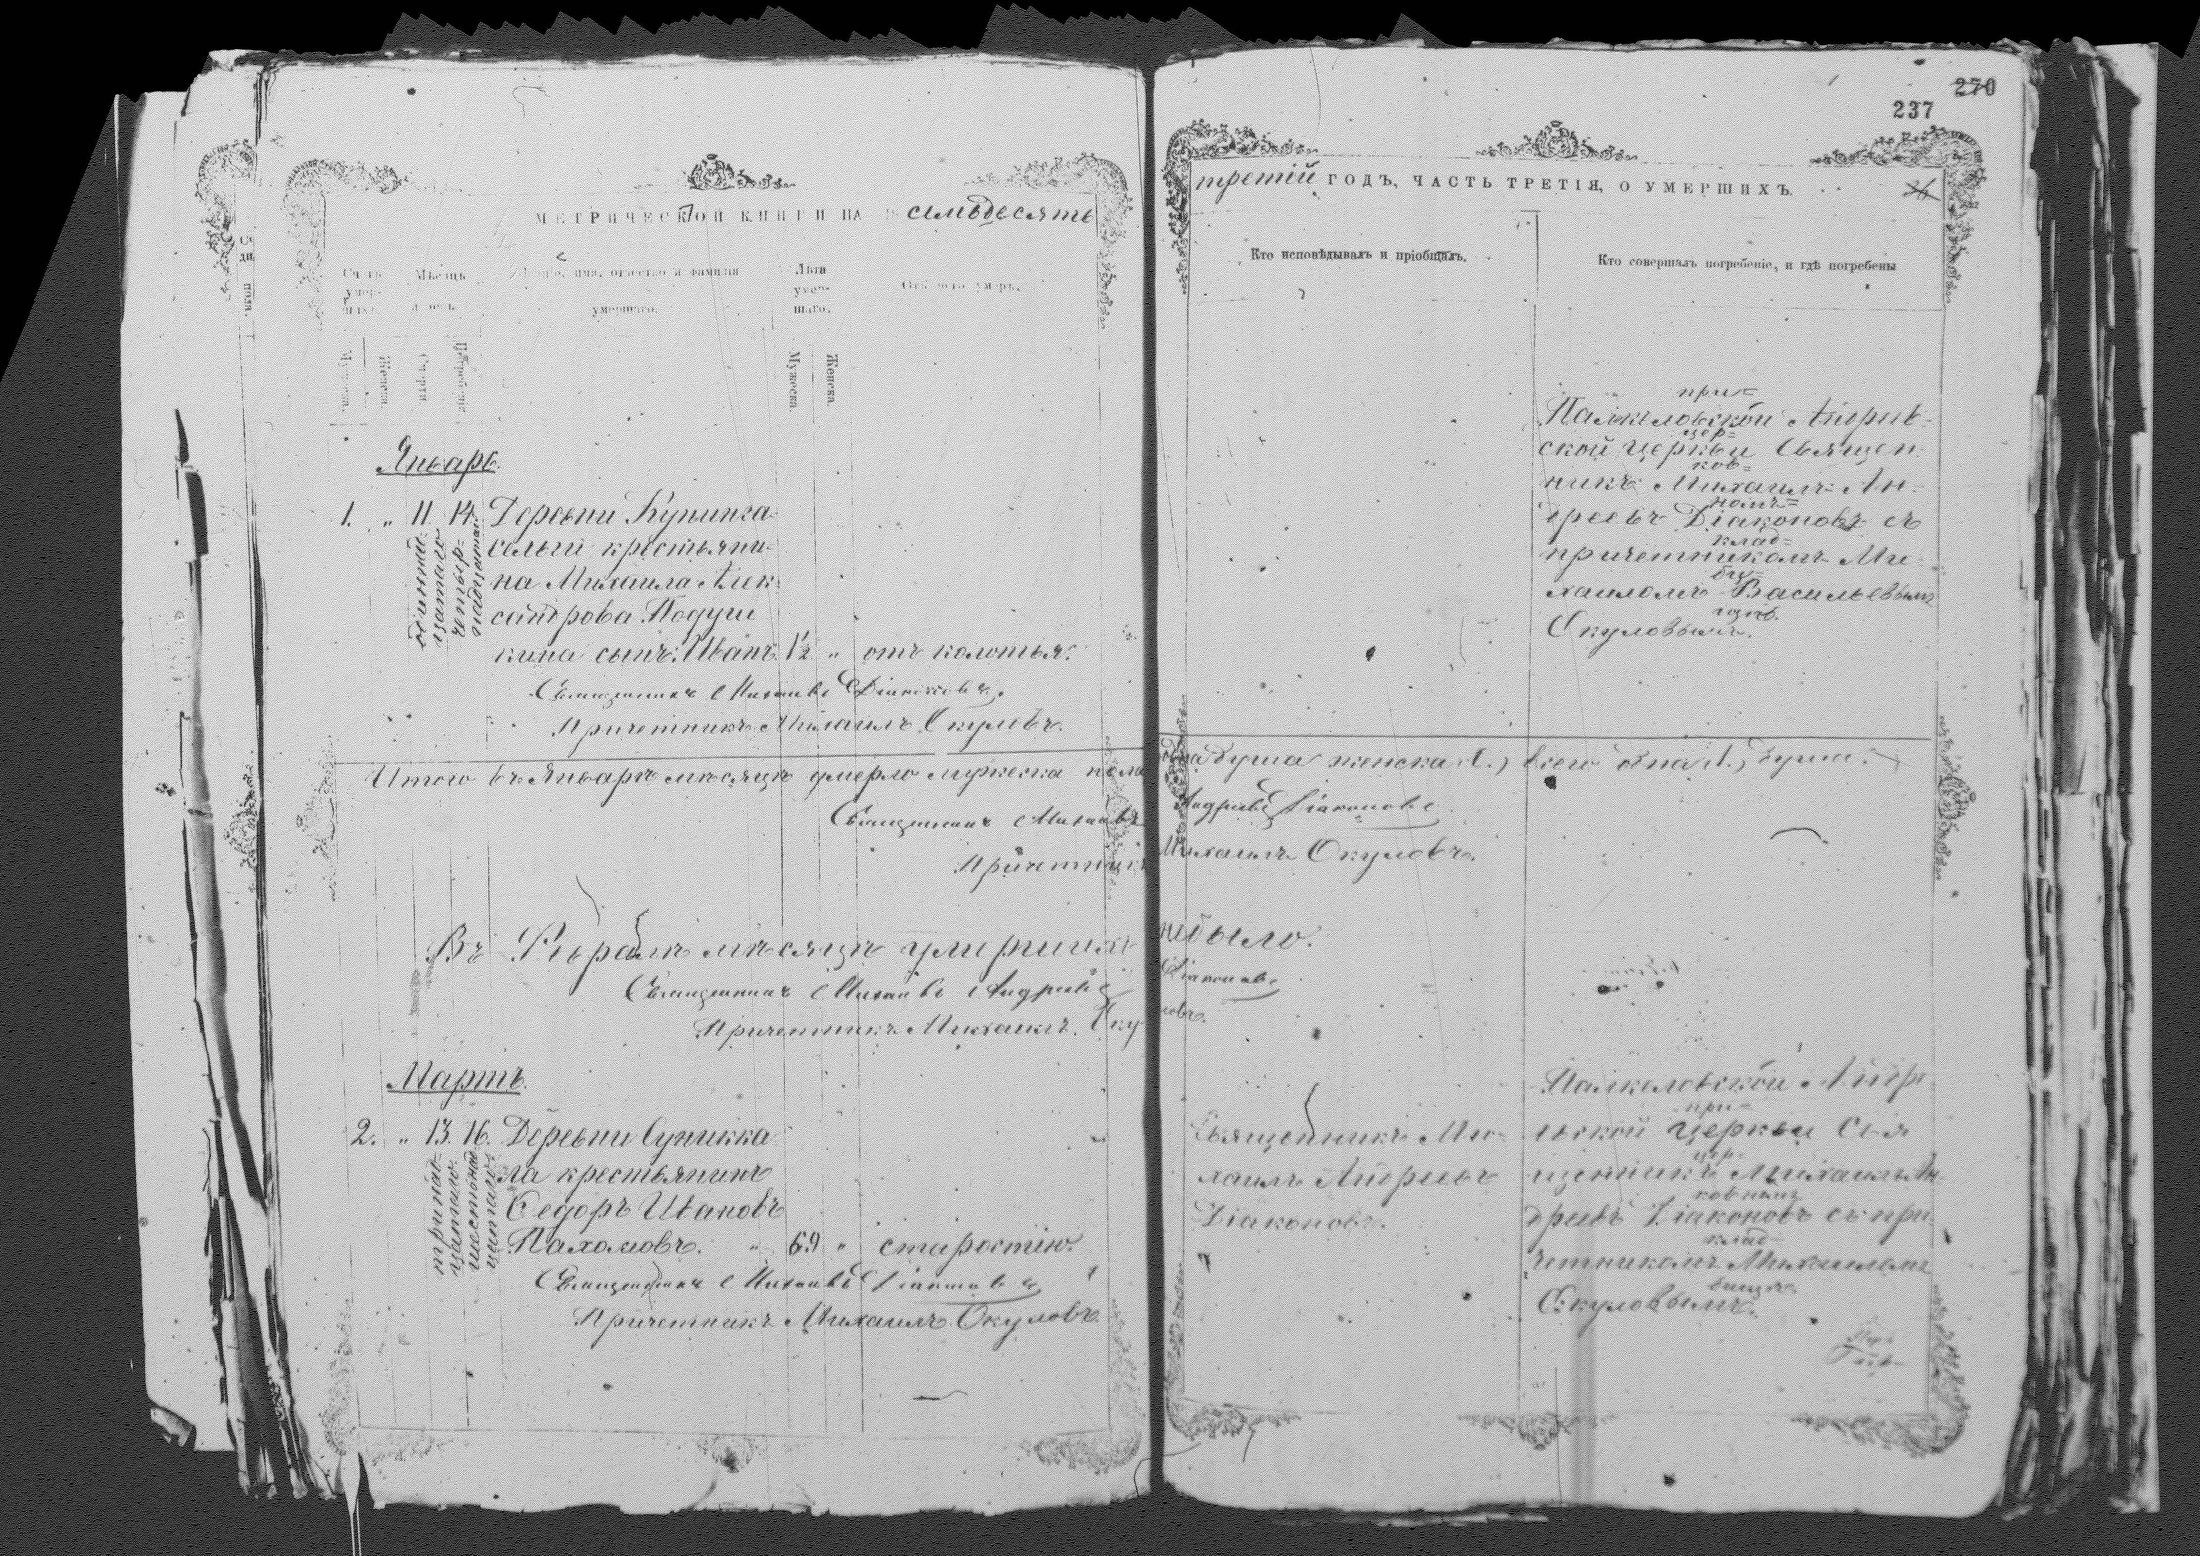 270
237
МЕТРИЧЕСКОЙ КНИГИ НА 18 семьдесять
третій ГОДЪ, ЧАСТЬ ТРЕТІЯ, О УМЕРШИХЪ.
Счетъ умершихъ.
Мѣсяцъ и день.
Званіе, имя, отчество и фамилія умершаго.
Лѣта умершаго.
Отъ чего умеръ.
Кто исповѣдывалъ и пріобщалъ.
Кто совершалъ погребеніе, и гдѣ погребены
Мужеска.
Женска.
Смерти
Погребенія
Мужеска.
Женска.
Январь.
1. „ 11. 14. Деревни
сельги крестьяни-
на Михаила Алек-
сандрова Подуш
кина сынъ: Иванъ. 1½ „ отъ колотья.
одиннад-
цатаго
четыр-
надцатаго
Священникъ Михаилъ Діаконовъ.
Причетникъ Михаилъ Окуловъ.
Палкеловской Андреев-
ской церкви Священ-
никъ Михаилъ Ан-
дреевъ Діаконовъ съ
причетникомъ Ми-
хаиломъ Васильевымъ
Окуловымъ.
при=
цер=
ков=
номъ=
клад=
би=
щѣ.
Итого въ Январѣ мѣсяцѣ умерло мужеска пола одна душа женска „ всего одна 1, душа.
Священникъ Михаилъ Андреевъ Діаконовъ
Причетникъ Михаилъ Окуловъ.
Въ Февралѣ мѣсяцѣ умершихъ небыло.
Священникъ Михаилъ Андреевъ Діаконовъ
Причетникъ Михаилъ Окуловъ.
Мартъ.
2. „ 13. 16. Деревни
ла крестьянинъ
Ѳедоръ Ивановъ
Пахомовъ. „ 69 „ старостію.
тринад-
цатаго
шестнад-
цатаго
Священникъ Михаилъ Діаконовъ
Причетникъ Михаилъ Окуловъ.
Священникъ Ми-
хаилъ Андреевъ
Діаконовъ.
Палкеловской Андре
евской церкви Свя
щенникъ Михаилъ Ан
дреевъ Діаконовъ съ при
четникомъ Михаиломъ
Окуловымъ.
при=
цер-
ковномъ
клад-
бищѣ.